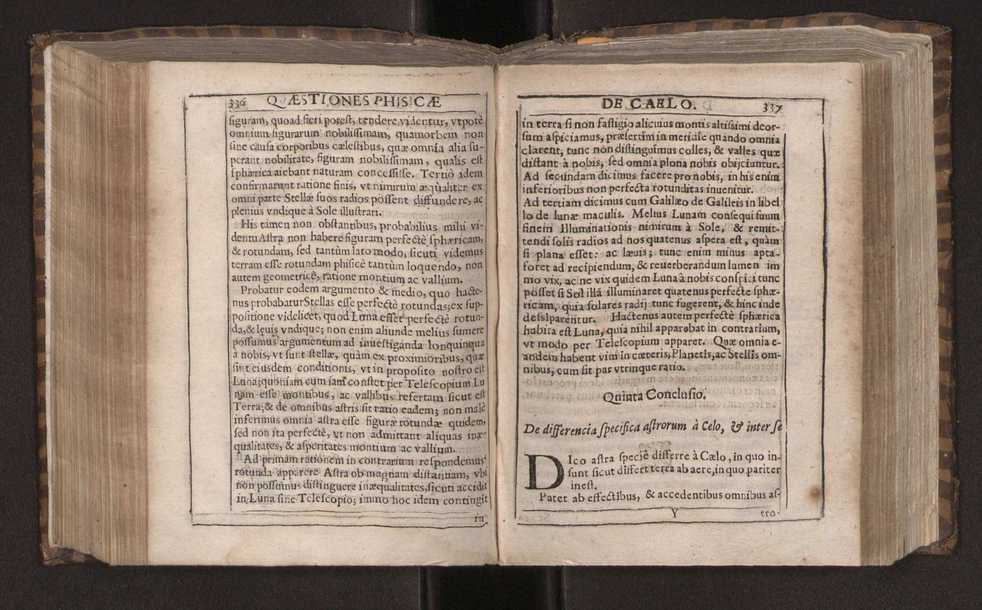 336 QVÆSTIONES PHISICÆ
figuram, quoad fieri potest, tendere videntur, vtpotè
omnium figurarum nobilissimam, quamobrem non
sine causa corporibus cælestibus, quæ omnia alia su-
perant nobilitate, figuram nobilissimam, qualis est
sphærica aiebant naturam concessisse. Tertiò idem
confirmarunt ratione finis, vt nimirum æqualiter ex
omni parte Stellæ suos radios possent diffundere, ac
plenius vndique à Sole illustrari.
His tamen non obstantibus, probabilius mihi vi-
dentu Astra non habere figuram perfectè sphæricam,
& rotundam, sed tantùm lato modo, sicuti videmus
terram esse rotundam phisicè tantùm loquendo, non
autem geometricè, ratione montium ac vallium.
Probatur eodem argumento & medio, quo hacte-
nus probabatur Stellas esse perfectè rotundas; ex sup-
positione videlicet, quod Luna esset perfectè rotun-
da, & lęuis vndique; non enim aliunde melius sumere
possumus argumentum ad inuestigãnda lonquinqua
à nobis, vt sunt stellæ, quàm ex proximioribus, quæ
sint eiusdem conditionis, vt in proposito nostro est
Luna; quoniam cum sanè constet per Telescopium Lu
nam esse montibus, ac vallibus refertam sicut est
Terra; & de omnibus astris sit ratio eadem; non malè
inferimus omnia astra esse figuræ rotundæ quidem,
sed non ita perfectè, vt non admittant aliquas inæ-
qualitates, & asperitates montium ac vallium.
Ad primam rationem in contrarium respondemus
rotunda apparere Astra ob magnam distantiam, vbi
non possimus distinguere inæqualitates, sicuti accidit
in Luna sine Telescopio; immo hoc idem contingit
in
DE CAELO. 337
in terra si non fastigio alicuius montis altissimi deor-
sum aspiciamus, præsertim in meriæ quando omnia
clarent, tunc non distingimus colles, & valles quæ
distant à nobis, sed omnia plona nobis obijciuntur.
Ad secundam dicimus facere pro nobis, in his enim
inferioribus non perfecta rotunditas inuenitur.
Ad tertiam dicimus cum Galilæo de Galileis in libel
lo de lunæ maculis. Melius Lunam consequi suum
finem Illuminationis nimirum à Sole, & remit-
tendi solis radios ad nos quatenus aspera est, quàm
si plana esset: ac læuis; tunc enim minus apta-
foret ad recipiendum, & reuerberandum lumen im
mo vix, ac ne vix quidem Luna à nobis conspici tunc
posset si Sol illã illuminaret quatenus perfectè sphæ-
ricam, quia solares radij tunc fugerent, & hinc inde
desilparentur. Hactenus autem perfectè sphærica
habita est Luna, quia nihil apparobat in contrarium,
vt modo per Telescopium apparet. Quæ omnia e-
andem habent vim in cæteris, Planetis, ac Stellis om-
nibus, cum sit par vtrinque ratio.
Quinta Conclusio.
De differencia specifica astrorum à Celo, & inter se
DIco astra specie differre à Cælo, in quo in-
sunt sicut differt terra ab aere, in quo pariter
inest.
Patet ab effectibus, & accedentibus omnibus as-
Y tro-